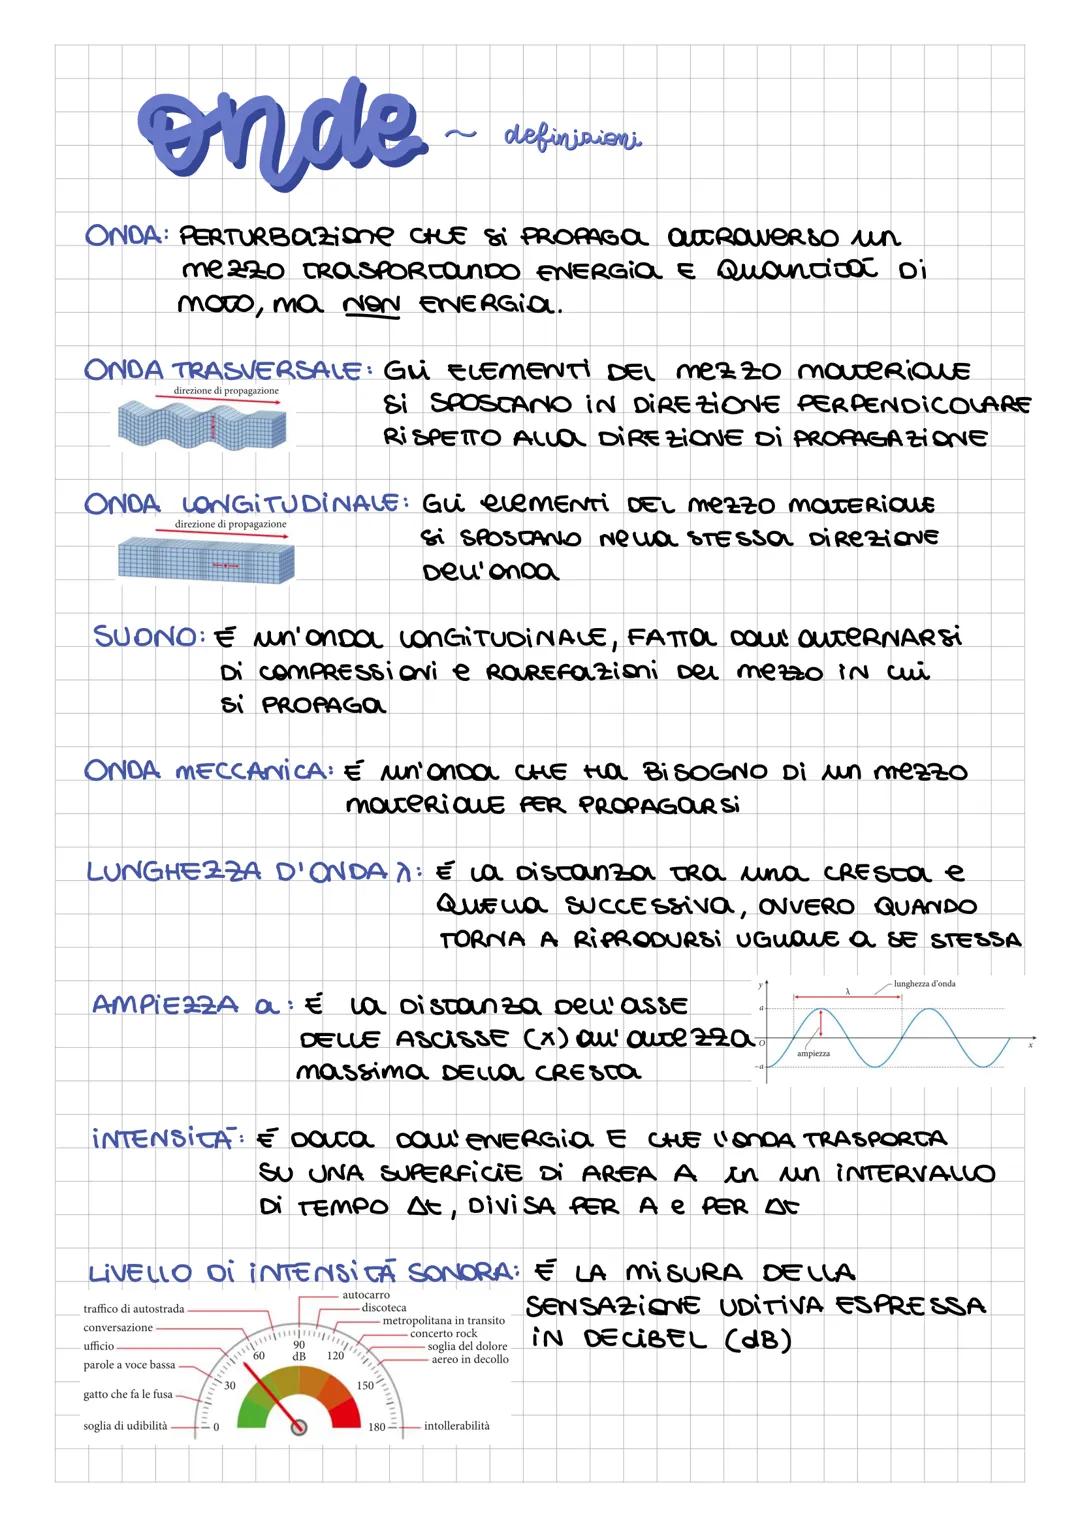 onde ~ definizioni
ONDA: PERTURBAZIONE CHE SI PROPAGA ATTRAVERSO UN
MEZZO TRASPORTANDO ENERGIA E QUANTITÀ DI
MOTO, MA NON ENERGIA.
ONDA TRASVERSALE: GLI ELEMENTI DEL MEZZO MATERIALE
direzione di propagazione
SI SPOSTANO IN DIREZIONE PERPENDICOLARE
RISPETTO ALLA DIREZIONE DI PROPAGAZIONE
ONDA LONGITUDINALE: GLI ELEMENTI DEL MEZZO MATERIALE
direzione di propagazione
SI SPOSTANO NELLA STESSA DIREZIONE
DELL'ONDA
SUONO: É UN'ONDA LONGITUDINALE, FATTA DALL'ALTERNARSI
DI COMPRESSIONI E RAREFAZIONI DEL MEZZO IN CUI
SI PROPAGA
ONDA MECCANICA: É UN'ONDA CHE HA BISOGNO DI UN MEZZO
MATERIALE PER PROPAGARSI
LUNGHEZZA D'ONDA λ: É LA DISTANZA TRA UNA CRESTA E
QUELLA SUCCESSIVA, OVVERO QUANDO
TORNA A RIPRODURSI UGUALE A SE STESSA
AMPIEZZA a: É LA DISTANZA DELL'ASSE
DELLE ASCISSE (X) ALL'ALTEZZA
MASSIMA DELLA CRESTA
y
λ
lunghezza d'onda
a
O
x
ampiezza
-a
INTENSITÀ: É DATA DALL'ENERGIA E CHE L'ONDA TRASPORTA
SU UNA SUPERFICIE DI AREA A IN UN INTERVALLO
DI TEMPO Δt, DIVISA PER A E PER Δt
LIVELLO DI INTENSITÀ SONORA: É LA MISURA DELLA
SENSAZIONE UDITIVA ESPRESSA
IN DECIBEL (dB)
autocarro
traffico di autostrada
discoteca
conversazione
metropolitana in transito
concerto rock
ufficio
soglia del dolore
parole a voce bassa
aereo in decollo
gatto che fa le fusa
soglia di udibilità
intollerabilità
0
30
60
90
dB
120
150
180